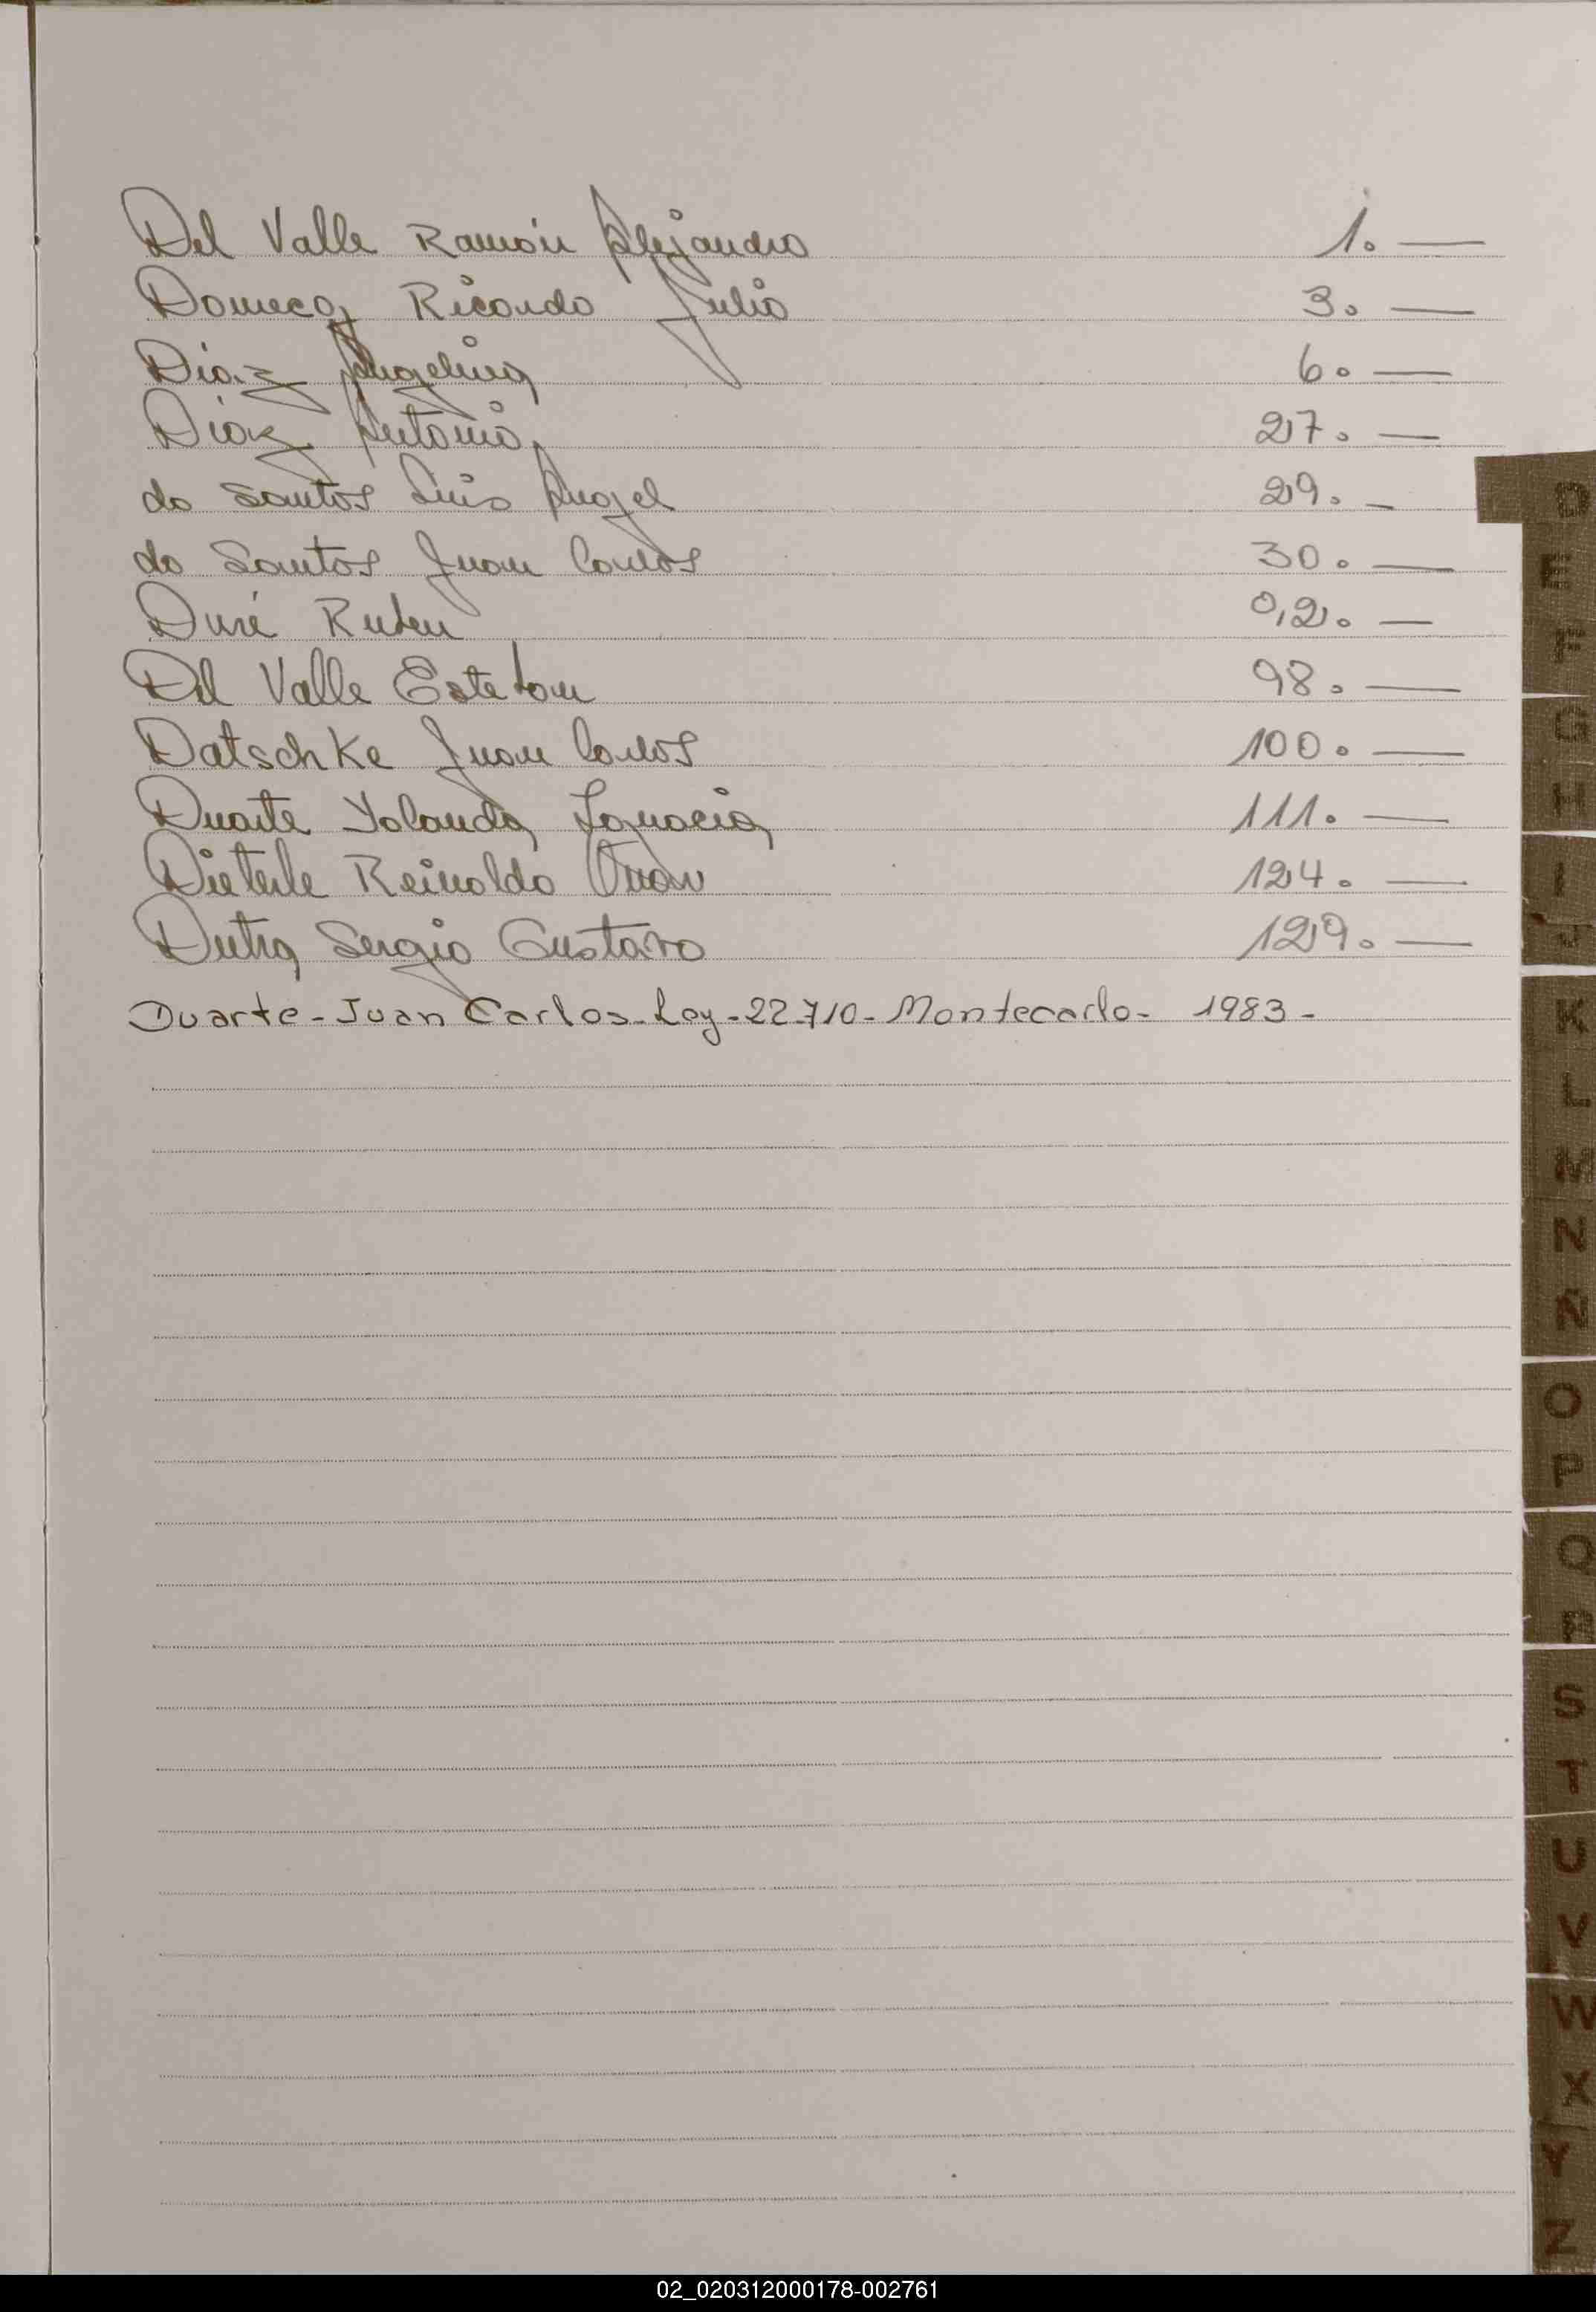 Del Valle Ramón Alejandro 1. —
Domecq Ricardo Julio 3. —
Diaz Angelina 6. —
Diaz Antonia 27. —
do Santos Luis Angel 29. —
do Santos Juan Carlos 30. —
Duré Ruben 0,2. —
Del Valle Esteban 98. —
Datschke Juan Carlos 100. —
Duarte Yolanda Ignacia 111. —
Dieterle Reinoldo 124. —
Dutra Sergio Gustavo 129. —
Duarte - Juan Carlos - Ley - 22.710 - Montecarlo - 1983 -
D
E
F
G
H
I
J
K
L
M
N
Ñ
O
P
Q
R
S
T
U
V
W
X
Y
Z
02_020312000178-002761